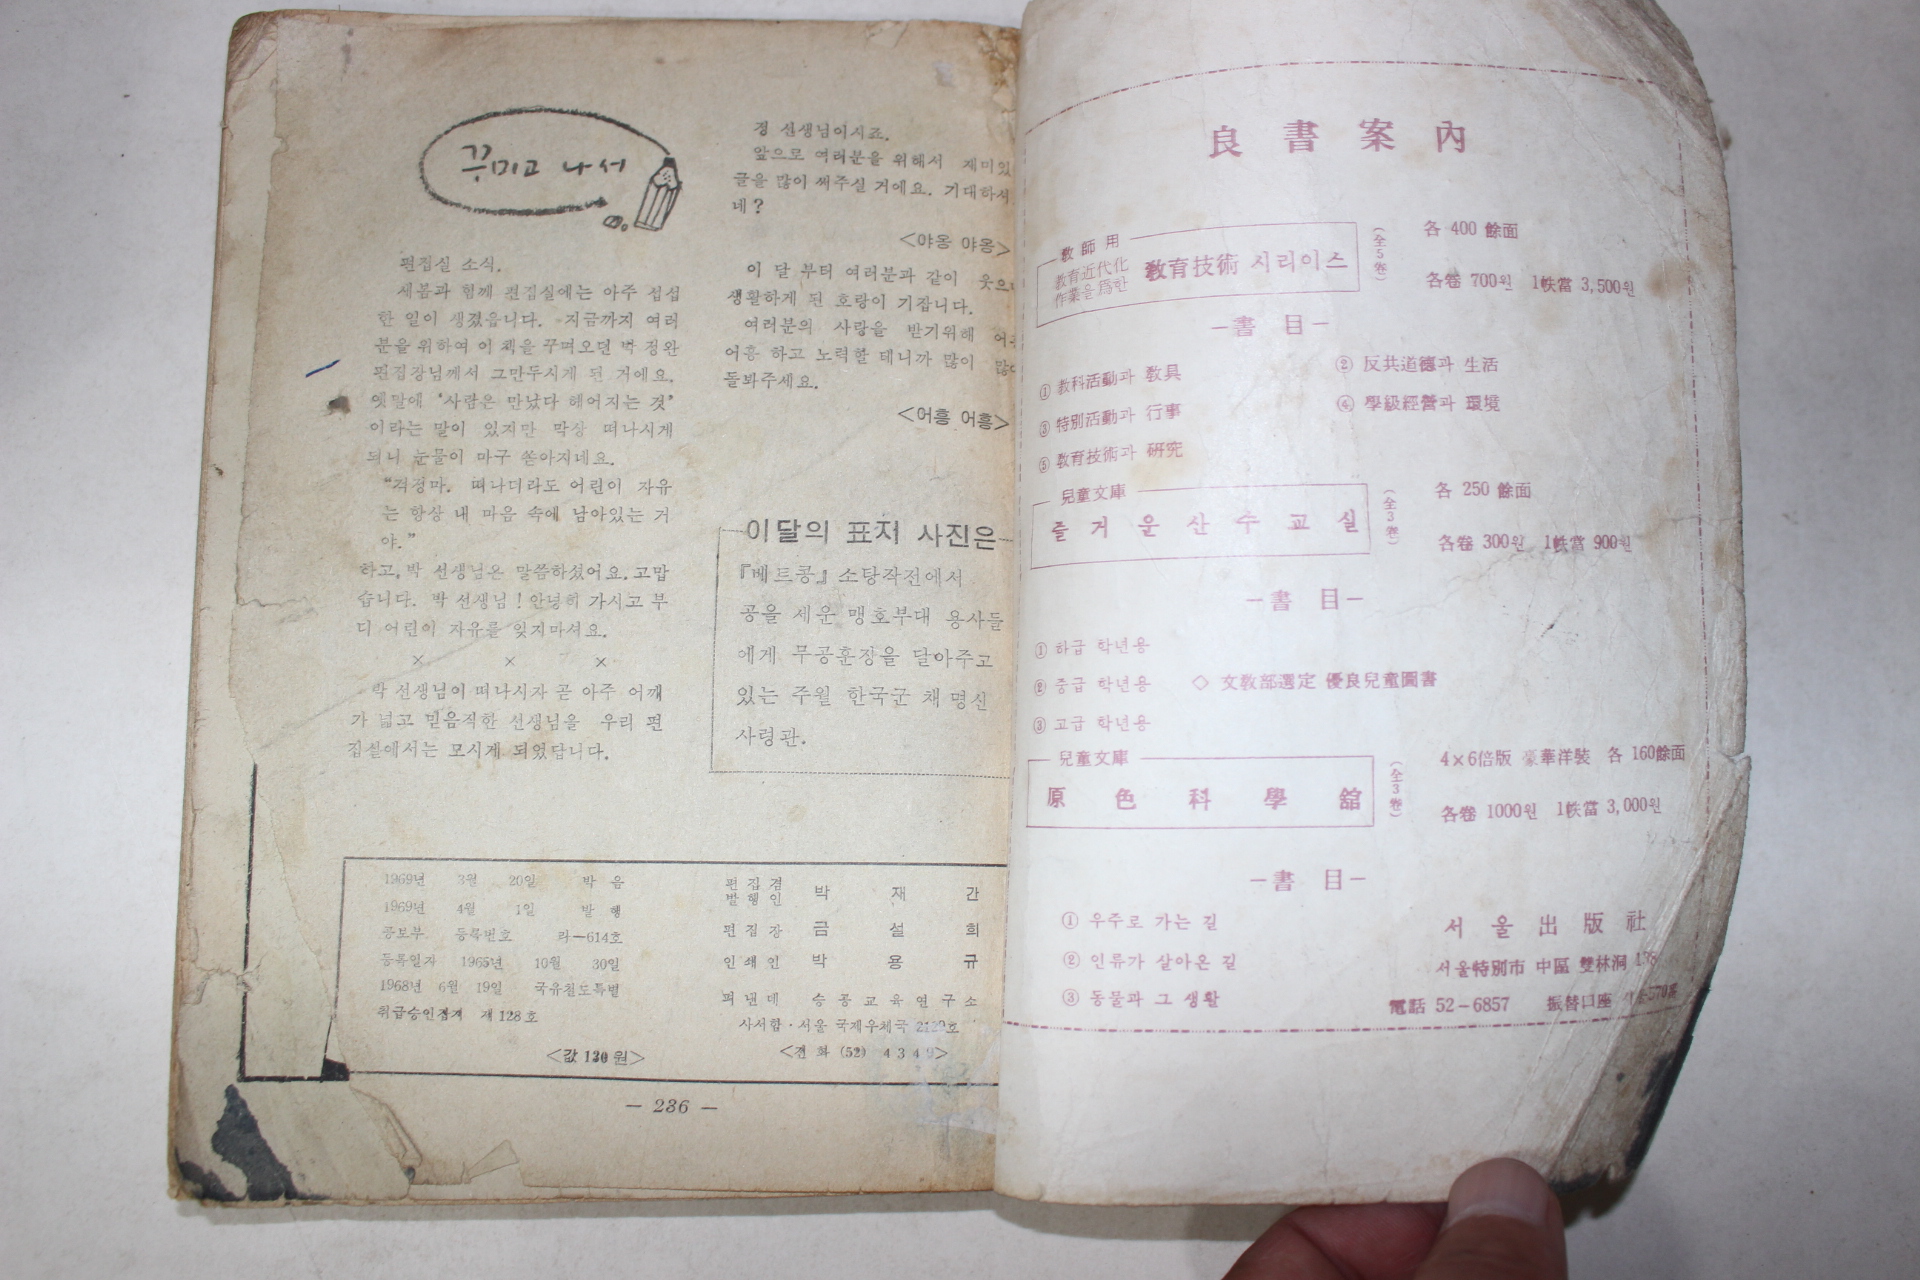 꾸미고 나서
편집실 소식.
새봄과 함께 편집실에는 아주 섭섭
한 일이 생겼읍니다. 지금까지 여러
분을 위하여 이 책을 꾸며오던 박 정완
편집장님께서 그만두시게 된 거에요.
옛말에 '사람은 만났다 헤어지는 것'
이라는 말이 있지만 막상 떠나시게
되니 눈물이 마구 쏟아지네요.
"걱정마. 떠나더라도 어린이 자유
는 항상 내 마음 속에 남아있는 거
야."
하고, 박 선생님은 말씀하셨어요. 고맙
습니다. 박 선생님! 안녕히 가시고 부
디 어린이 자유를 잊지마셔요.
× × ×
박 선생님이 떠나시자 곧 아주 어깨
가 넓고 믿음직한 선생님을 우리 편
집실에서는 모시게 되었답니다.
정 선생님이시죠.
앞으로 여러분을 위해서 재미있
글을 많이 써주실 거에요. 기대하셔
네?
<야옹 야옹>
이 달 부터 여러분과 같이 웃으
생활하게 된 호랑이 기잡니다.
여러분의 사랑을 받기위해 어흥
어흥 하고 노력할 테니까 많이 많
돌봐주세요.
<어흥 어흥>
이달의 표지 사진은
『베트콩』 소탕작전에서
공을 세운 맹호부대 용사들
에게 무공훈장을 달아주고
있는 주월 한국군 채 명신
사령관.
1969년 3월 20일 박음
1969년 4월 1일 발행
공보부 등록번호 라—614호
등록일자 1965년 10월 30일
1968년 6월 19일 국유철도특별
취급승인잡지 제 128 호
<값 130 원>
편집겸
발행인 박 재 간
편집장 금 설 희
인쇄인 박 용 규
펴낸데 승공교육연구소
사서함·서울 국제우체국 2139호
<전화 (52) 4349>
— 236 —
良書案內
敎師用
敎育近代化
作業을 爲한 敎育技術 시리이스
(全5卷)
各 400 餘面
各卷 700원 1帙當 3,500원
—書 目—
① 敎科活動과 敎具
② 反共道德과 生活
③ 特別活動과 行事
④ 學級經營과 環境
⑤ 敎育技術과 硏究
兒童文庫
즐거운산수교실
(全3卷)
各 250 餘面
各卷 300원 1帙當 900원
—書 目—
① 하급 학년용
② 중급 학년용 ◇ 文敎部選定 優良兒童圖書
③ 고급 학년용
兒童文庫
原色科學館
(全3卷)
4×6倍版 豪華洋裝 各 160餘面
各卷 1000원 1帙當 3,000원
—書 目—
① 우주로 가는 길
② 인류가 살아온 길
③ 동물과 그 생활
서울出版社
서울特別市 中區 雙林洞
電話 52-6857 振替口座